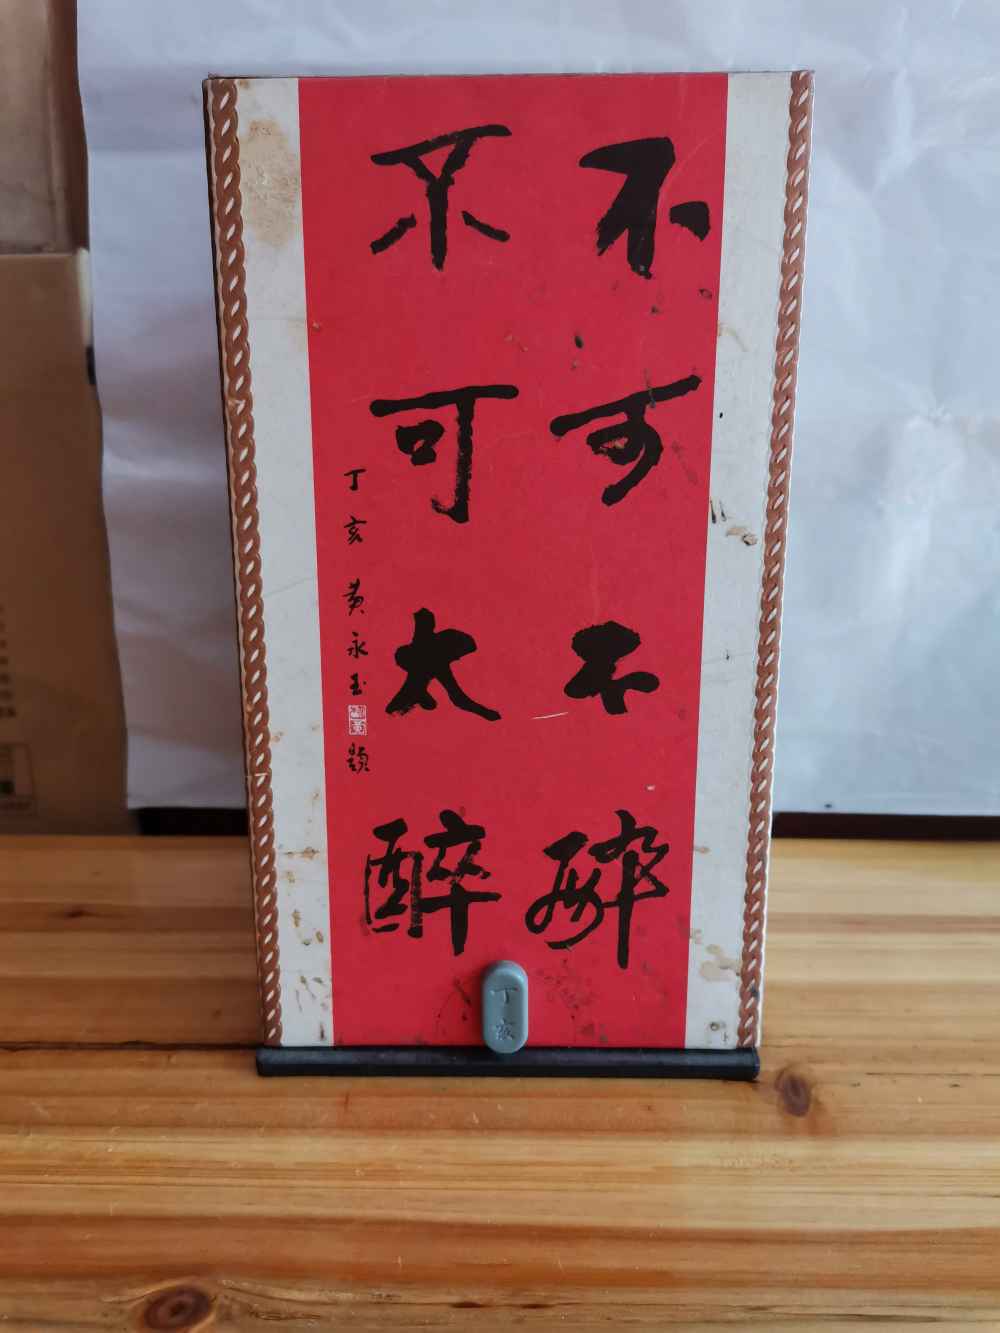 不可不醉
不可太醉
丁亥 黄永玉 题
丁亥